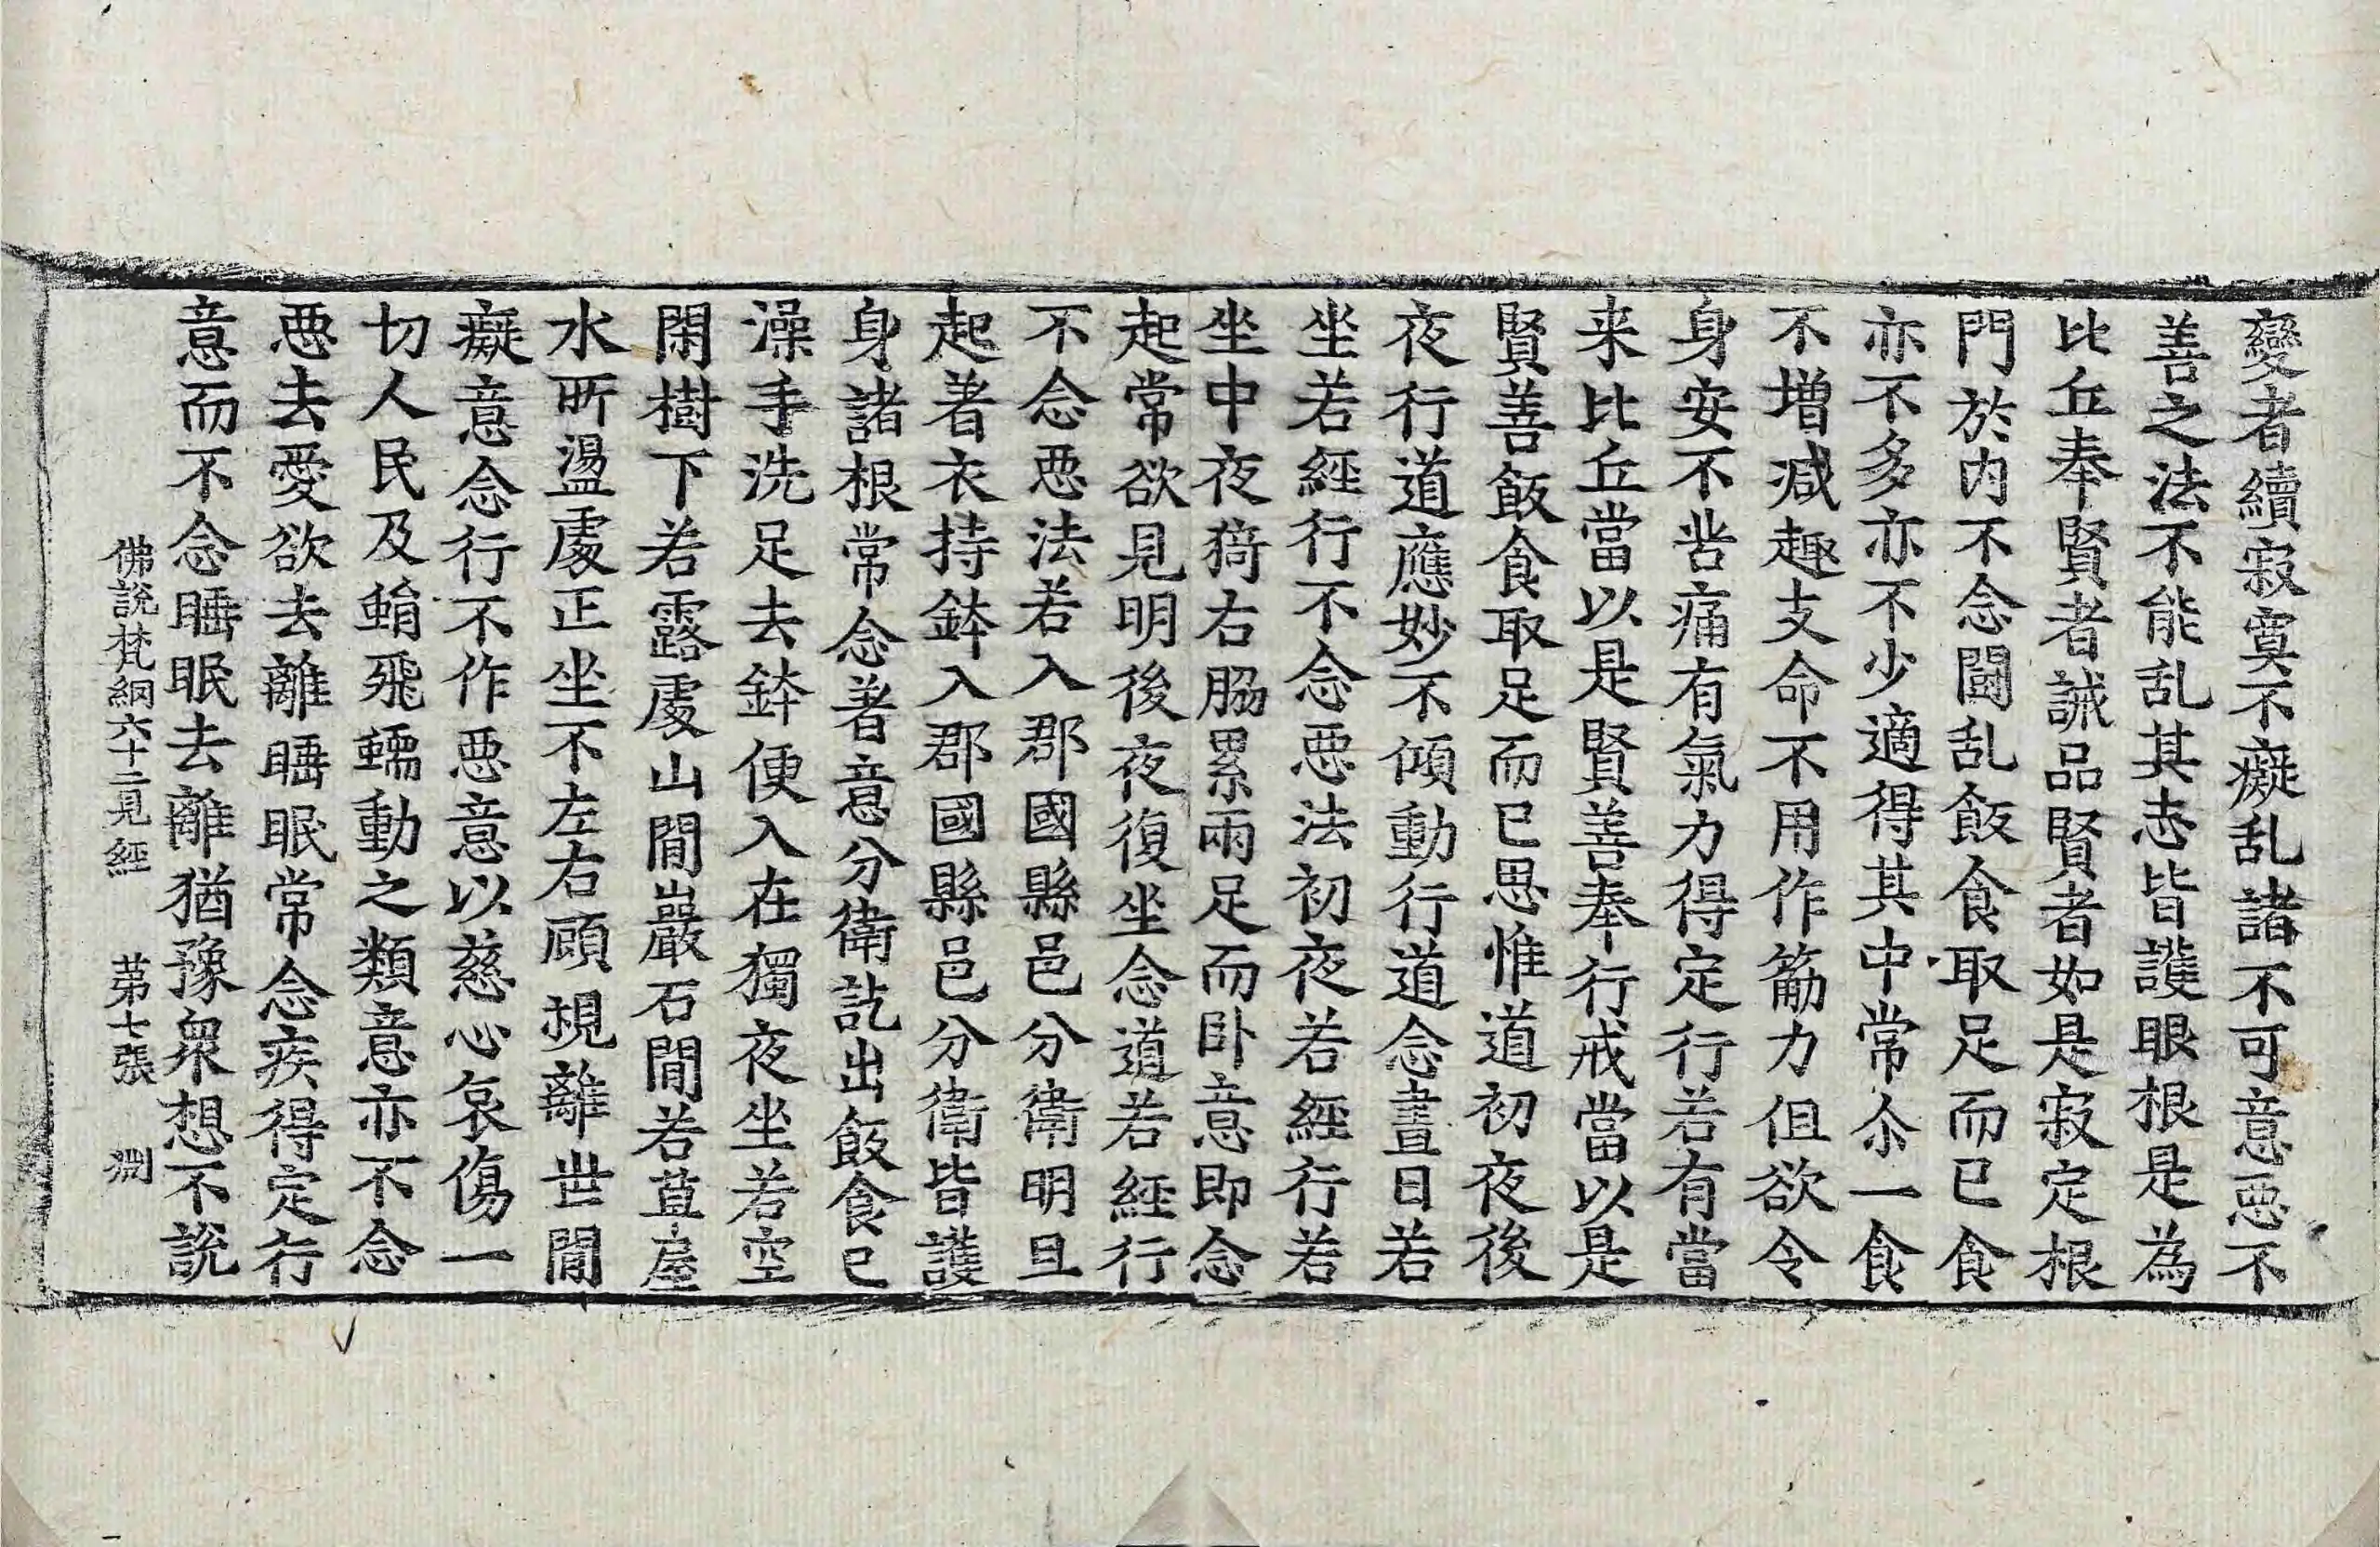 變者續寂寞不癡乱諸不可意惡不
善之法不能乱其志皆護眼根是為
比丘奉賢者誡品賢者如是寂定根
門於內不念鬪乱飯食取足而已食
亦不多亦不少適得其中常尒一食
不增减趣支命不用作筋力但欲令
身安不苦痛有氣力得定行若有當
来比丘當以是賢善奉行戒當以是
賢善飯食取足而已思惟道初夜後
夜行道應妙不傾動行道念晝日若
坐若經行不念惡法初夜若經行若
坐中夜猗右脇累兩足而卧意即念
起常欲見明後夜復坐念道若經行
不念惡法若入郡國縣邑分衛明旦
起著衣持鉢入郡國縣邑分衛皆護
身諸根常念著意分衛訖出飯食已
澡手洗足去鉢便入在獨夜坐若空
閑樹下若露處山間巖石間若草屋
水所盪處正坐不左右顧視離世間
癡意念行不作惡意以慈心哀傷一
切人民及蜎飛蠕動之類意亦不念
惡去愛欲去離睡眠常念疾得定行
意而不念睡眠去離猶豫衆想不說
佛說梵網六十二見經 苐七張 渊